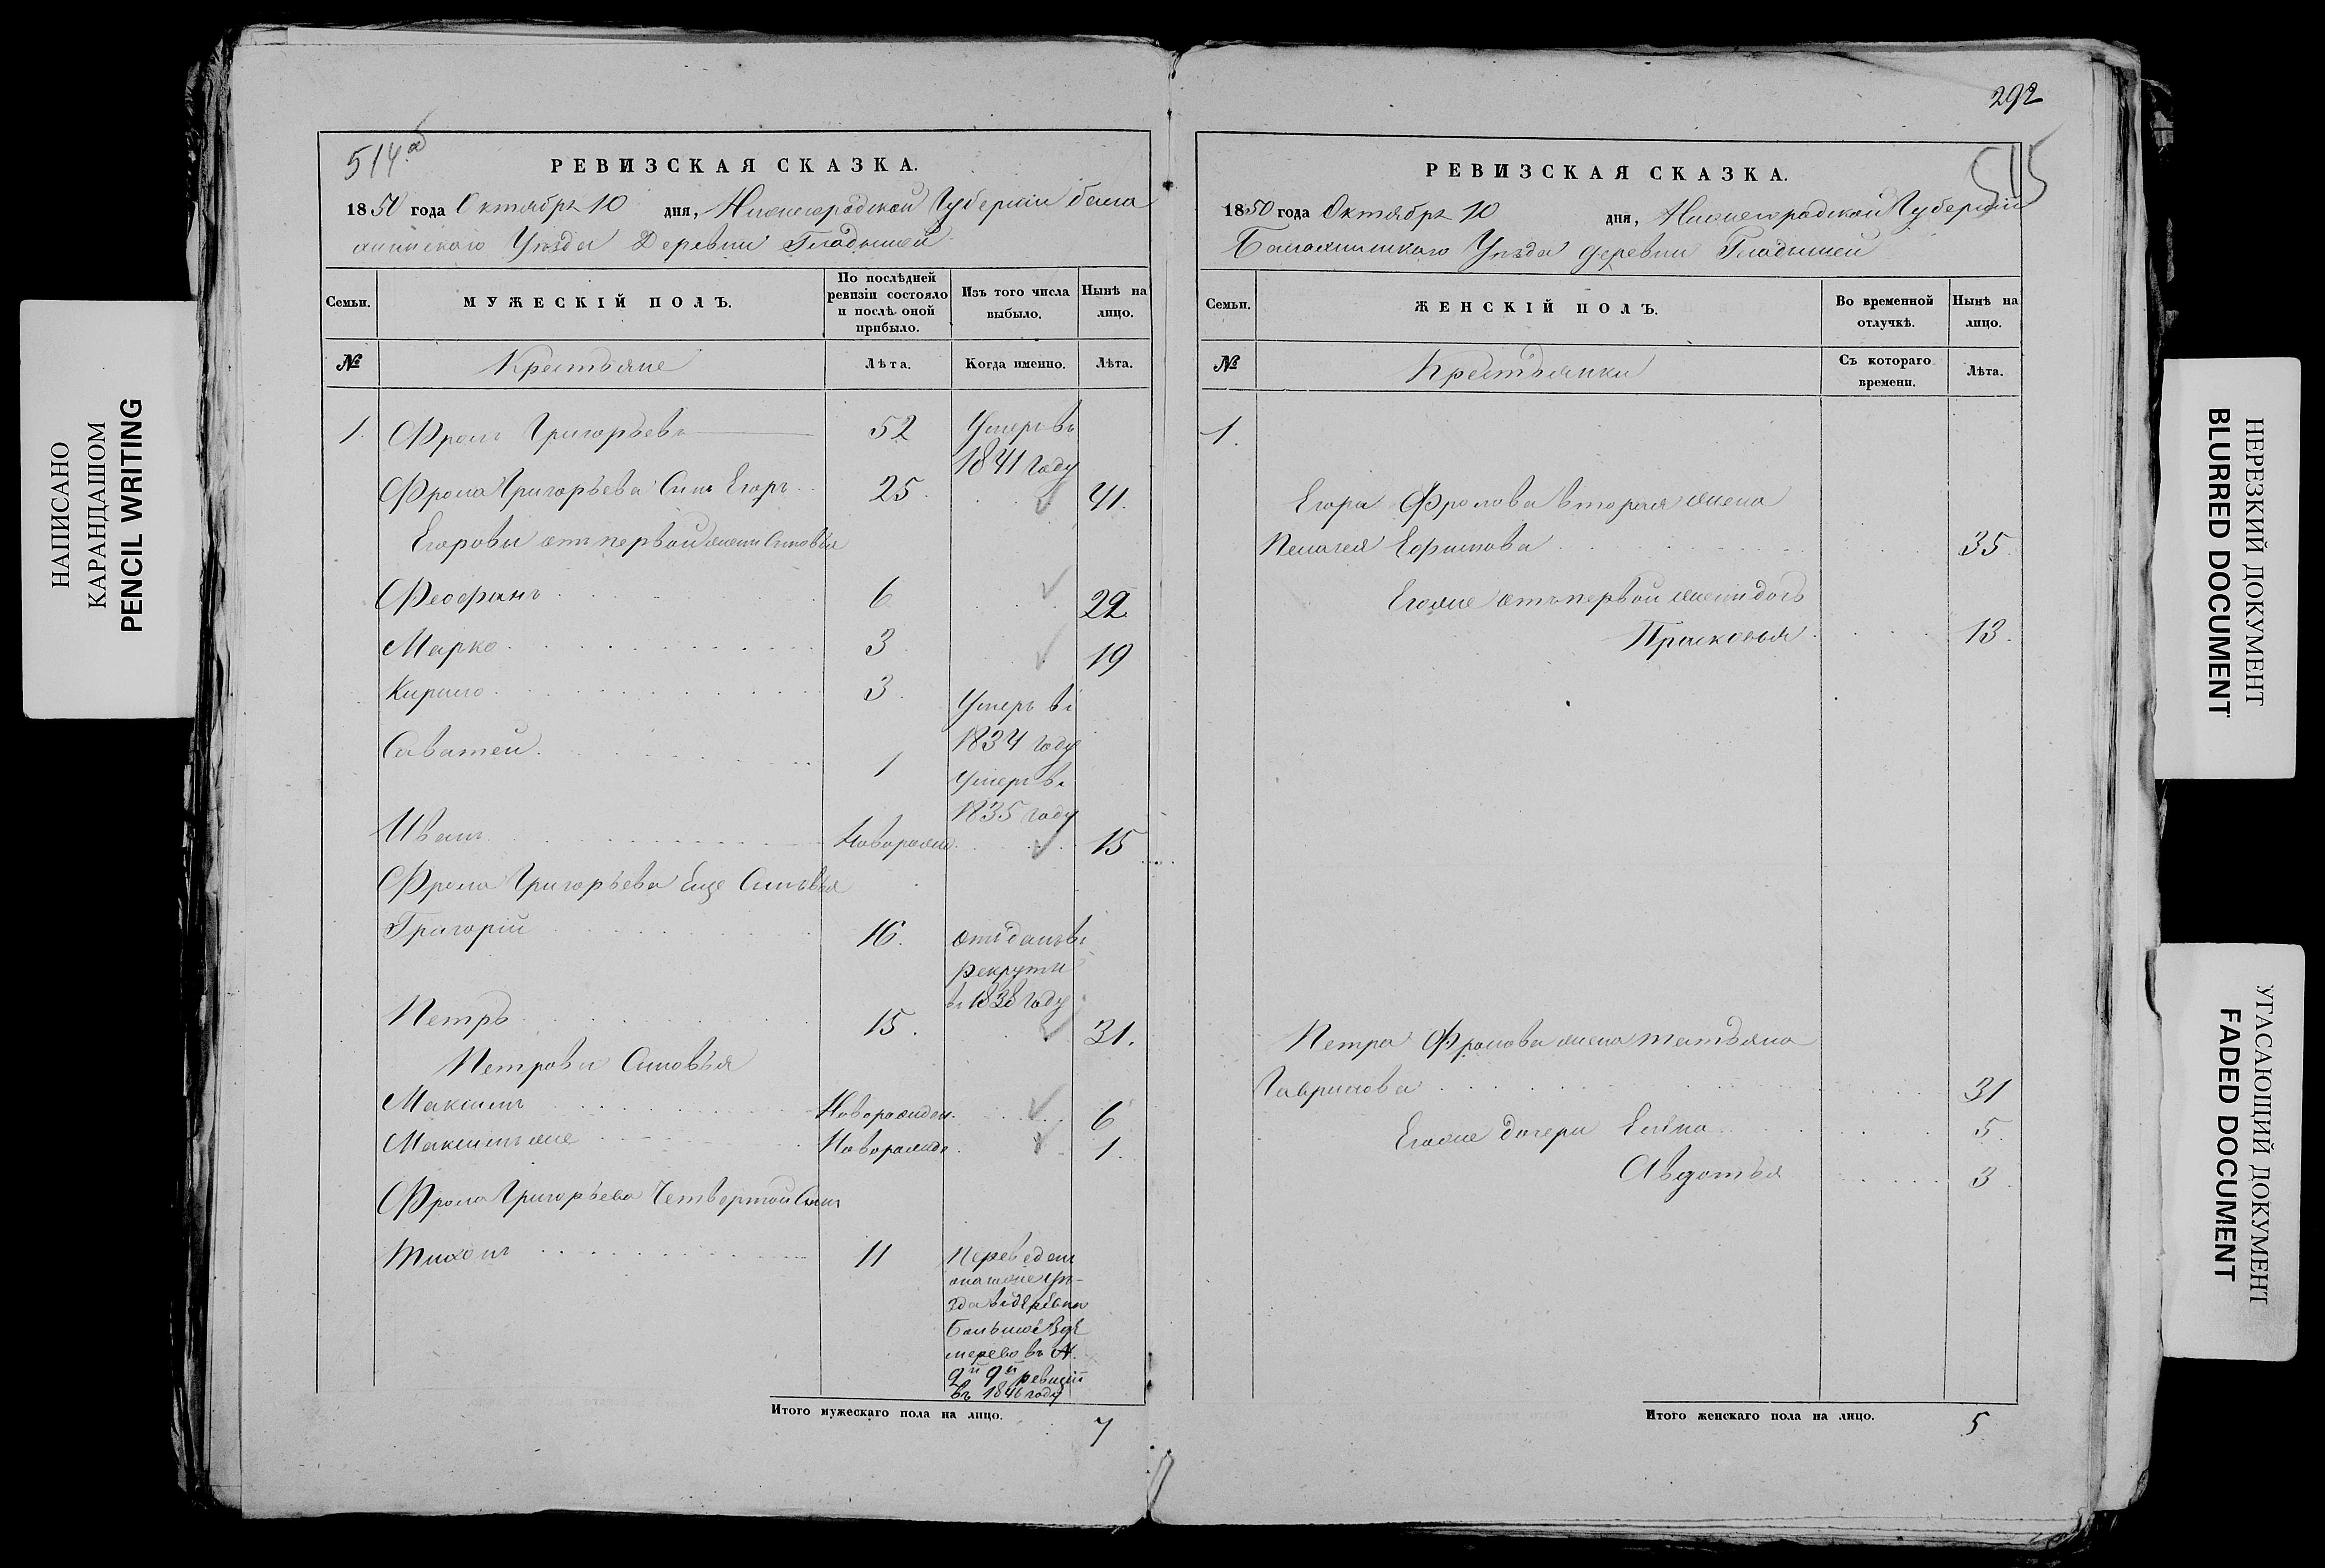 292
514 об
РЕВИЗСКАЯ СКАЗКА.
1850 года Октября 10 дня, Нижегородской Губернiи бала
хнинского Уѣзда Деревни Гладышей
Семьи.
МУЖЕСКІЙ ПОЛЪ.
По послѣдней ревизіи состояло и послѣ оной прибыло.
Изъ того числа выбыло.
Нынѣ на лицо.
№
Крестьяне
Лѣта.
Когда именно.
Лѣта.
1. Фролъ Григорьевъ 52 Умеръ въ
1841 году
Фрола Григорьева Сынъ Егоръ 25. 41.
Егоровы отъ первой жены Сыновья
Феофанъ 6 22.
Марко 3 19
Кирило 3. Умеръ въ
1834 году
Саватей. 1 Умеръ въ
1835 году
Иванъ Новорожд. 15
Фрола Григорьева Еще Сыновья
Григорій 16. отъданъ въ
рекруты
въ 1838 году
Петръ 15. 31.
Петровы Сыновья
Максимъ Новорожден. 6
Новорожде. 1.
Фрола Григорьева Четвертой Сынъ
Тихонъ 11 Переведенъ
уѣ-
зда въ деревню
Большое
въ
9й ревизіи
въ 1846 году
Итого мужескаго пола на лицо. 7
515
РЕВИЗСКАЯ СКАЗКА.
1850 года Октября 10 дня, Нижегородской Губернiи
Балахнинского Уѣзда деревни Гладышей
Семьи.
ЖЕНСКІЙ ПОЛЪ.
Во временной отлучкѣ.
Нынѣ на лицо.
№
Крестьянки
Съ котораго времени.
Лѣта.
1.
Егора Фролова вторая жена
Пелагея Ефимова 35.
Егоже отъ первой жены дочь
Прасковья. 13.
Петра Фролова жена татьяна
Гаврилова 31
Егоже дочери Елена 5.
Авдотья 3.
Итого женскаго пола на лицо. 5
НАПИСАНО
КАРАНДАШОМ
PENCIL WRITING
НЕРЕЗКИЙ ДОКУМЕНТ
BLURRED DOCUMENT
УГАСАЮЩИЙ ДОКУМЕНТ
FADED DOCUMENT